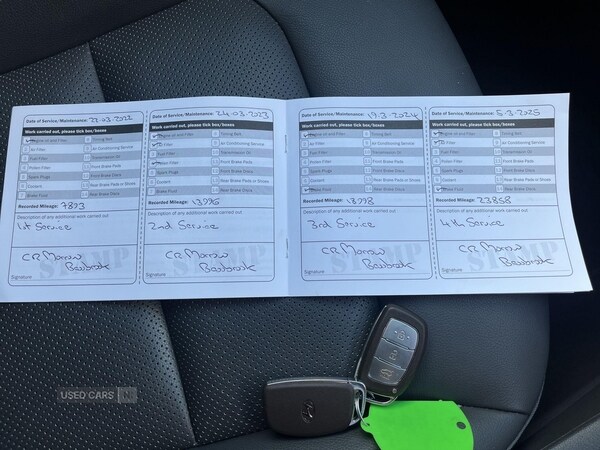 Date of Service/Maintenance: 22-03-2022
Work carried out, please tick box/boxes
Engine oil and Filter
Timing Belt
Air Filter
Air Conditioning Service
Fuel Filter
Transmission Oil
Pollen Filter
Front Brake Pads
Spark Plugs
Rear Brake Pads or Shoes
Coolant
Front Brake Discs
Brake Fluid
Recorded Mileage: 7893
Description of any additional work carried out
1st Service
CR Morrow
Banbrook
Signature
STAMP
Date of Service/Maintenance: 24-03-2023
Work carried out, please tick box/boxes
Engine oil and Filter
Timing Belt
Air Filter
Air Conditioning Service
Fuel Filter
Transmission Oil
Pollen Filter
Front Brake Pads
Spark Plugs
Coolant
Rear Brake Pads or Shoes
Brake Fluid
Rear Brake Discs
Recorded Mileage: 13996
Description of any additional work carried out
2nd Service
CR Morrow
Signature
STAMP
Date of Service/Maintenance: 19.3-2024
Work carried out, please tick box/boxes
Engine oil and Filter
Timing Belt
Air Filter
Air Conditioning Service
Fuel Filter
Transmission Oil
Pollen Filter
Front Brake Pads
Spark Plugs
Front Brake Discs
Coolant
Rear Brake Pads or Shoes
Brake Fluid
Rear Brake Discs
Recorded Mileage: 13998
Description of any additional work carried out
3rd Service
CR Morrow
Signature
STAMP
Date of Service/Maintenance: 5-3-2025
Work carried out, please tick box/boxes
Engine oil and Filter
Timing Belt
Air Filter
Air Conditioning Service
Fuel Filter
Transmission Oil
Pollen Filter
Front Brake Pads
Spark Plugs
Front Brake Discs
Coolant
Rear Brake Pads or Shoes
Brake Fluid
Rear Brake Discs
Recorded Mileage: 23858
Description of any additional work carried out
4th Service
CR Morrow
Signature
STAMP
USED CARS NI